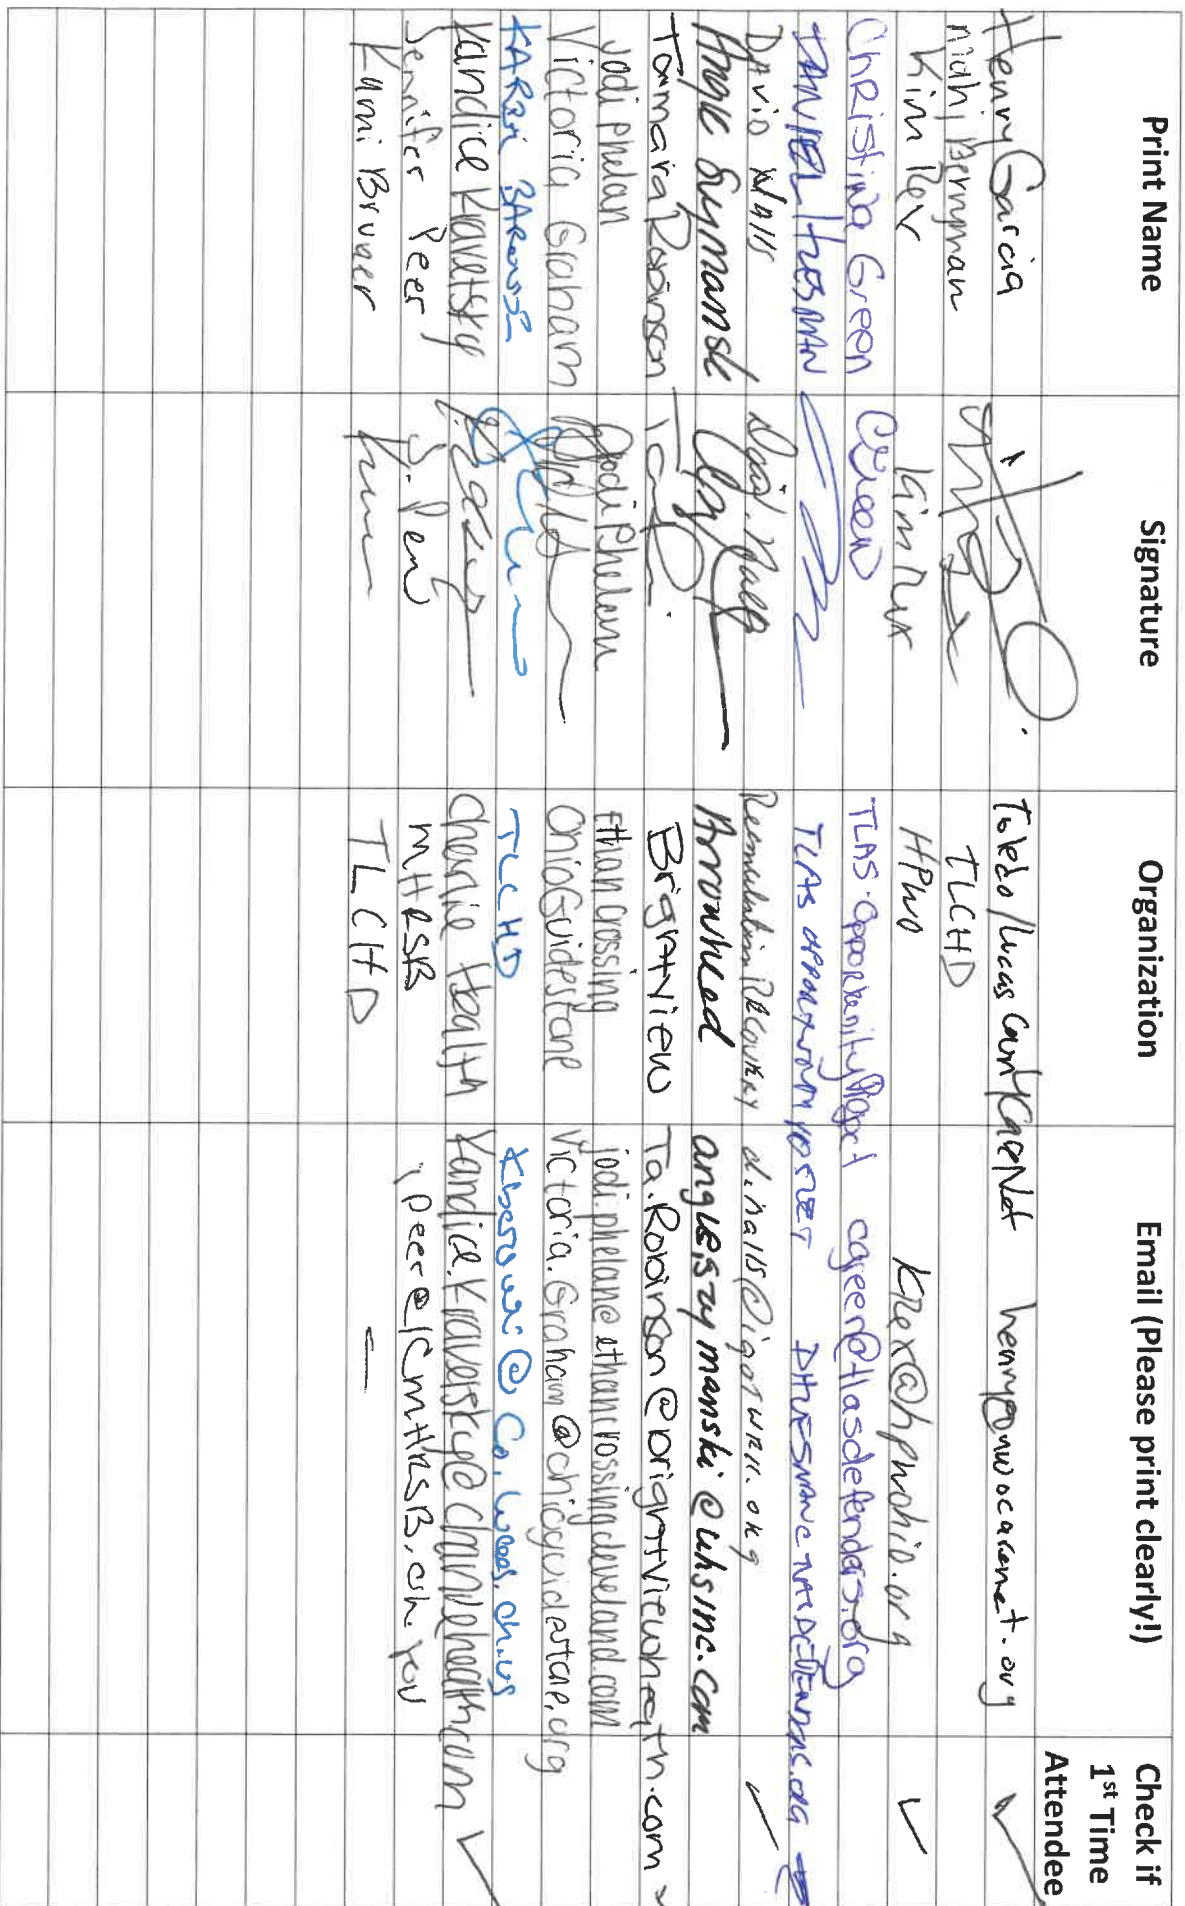 Print Name Signature Organization Email (Please print clearly!) Check if 1st Time Attendee
Henry Garcia Toledo/Lucas County CareNet henry@nwocarenet.org ✓
Berryman TLCHD
Kim Rex Kim Rex HPWO krex@hpwohio.org ✓
Christina Green CGreen TLAS-Opportunity Project cgreen@tlasdefenders.org
DANIEL HUESMAN TLAS
David Nalls Recovery d.nalls@igotwrn.org ✓
Angie Szymanski Arrowhead angie.szymanski@uhsinc.com
Tamara Robinson BrightView Ta.Robinson@brightviewhealth.com ✓
Jodi Phelan Jodi Phelan Ethan Crossing jodi.phelan@ethancrossingcleveland.com
Victoria Graham OhioGuidestone Victoria.Graham@ohioguidestone.org
KARRI TLCHD @Co.Lucas.oh.us
Kandice Kravetsky Charlie Health Kandice.Kravetsky@charliehealth.com ✓
Jennifer Peer J. Peer MHRSB
Kami Bruner TLCHD —